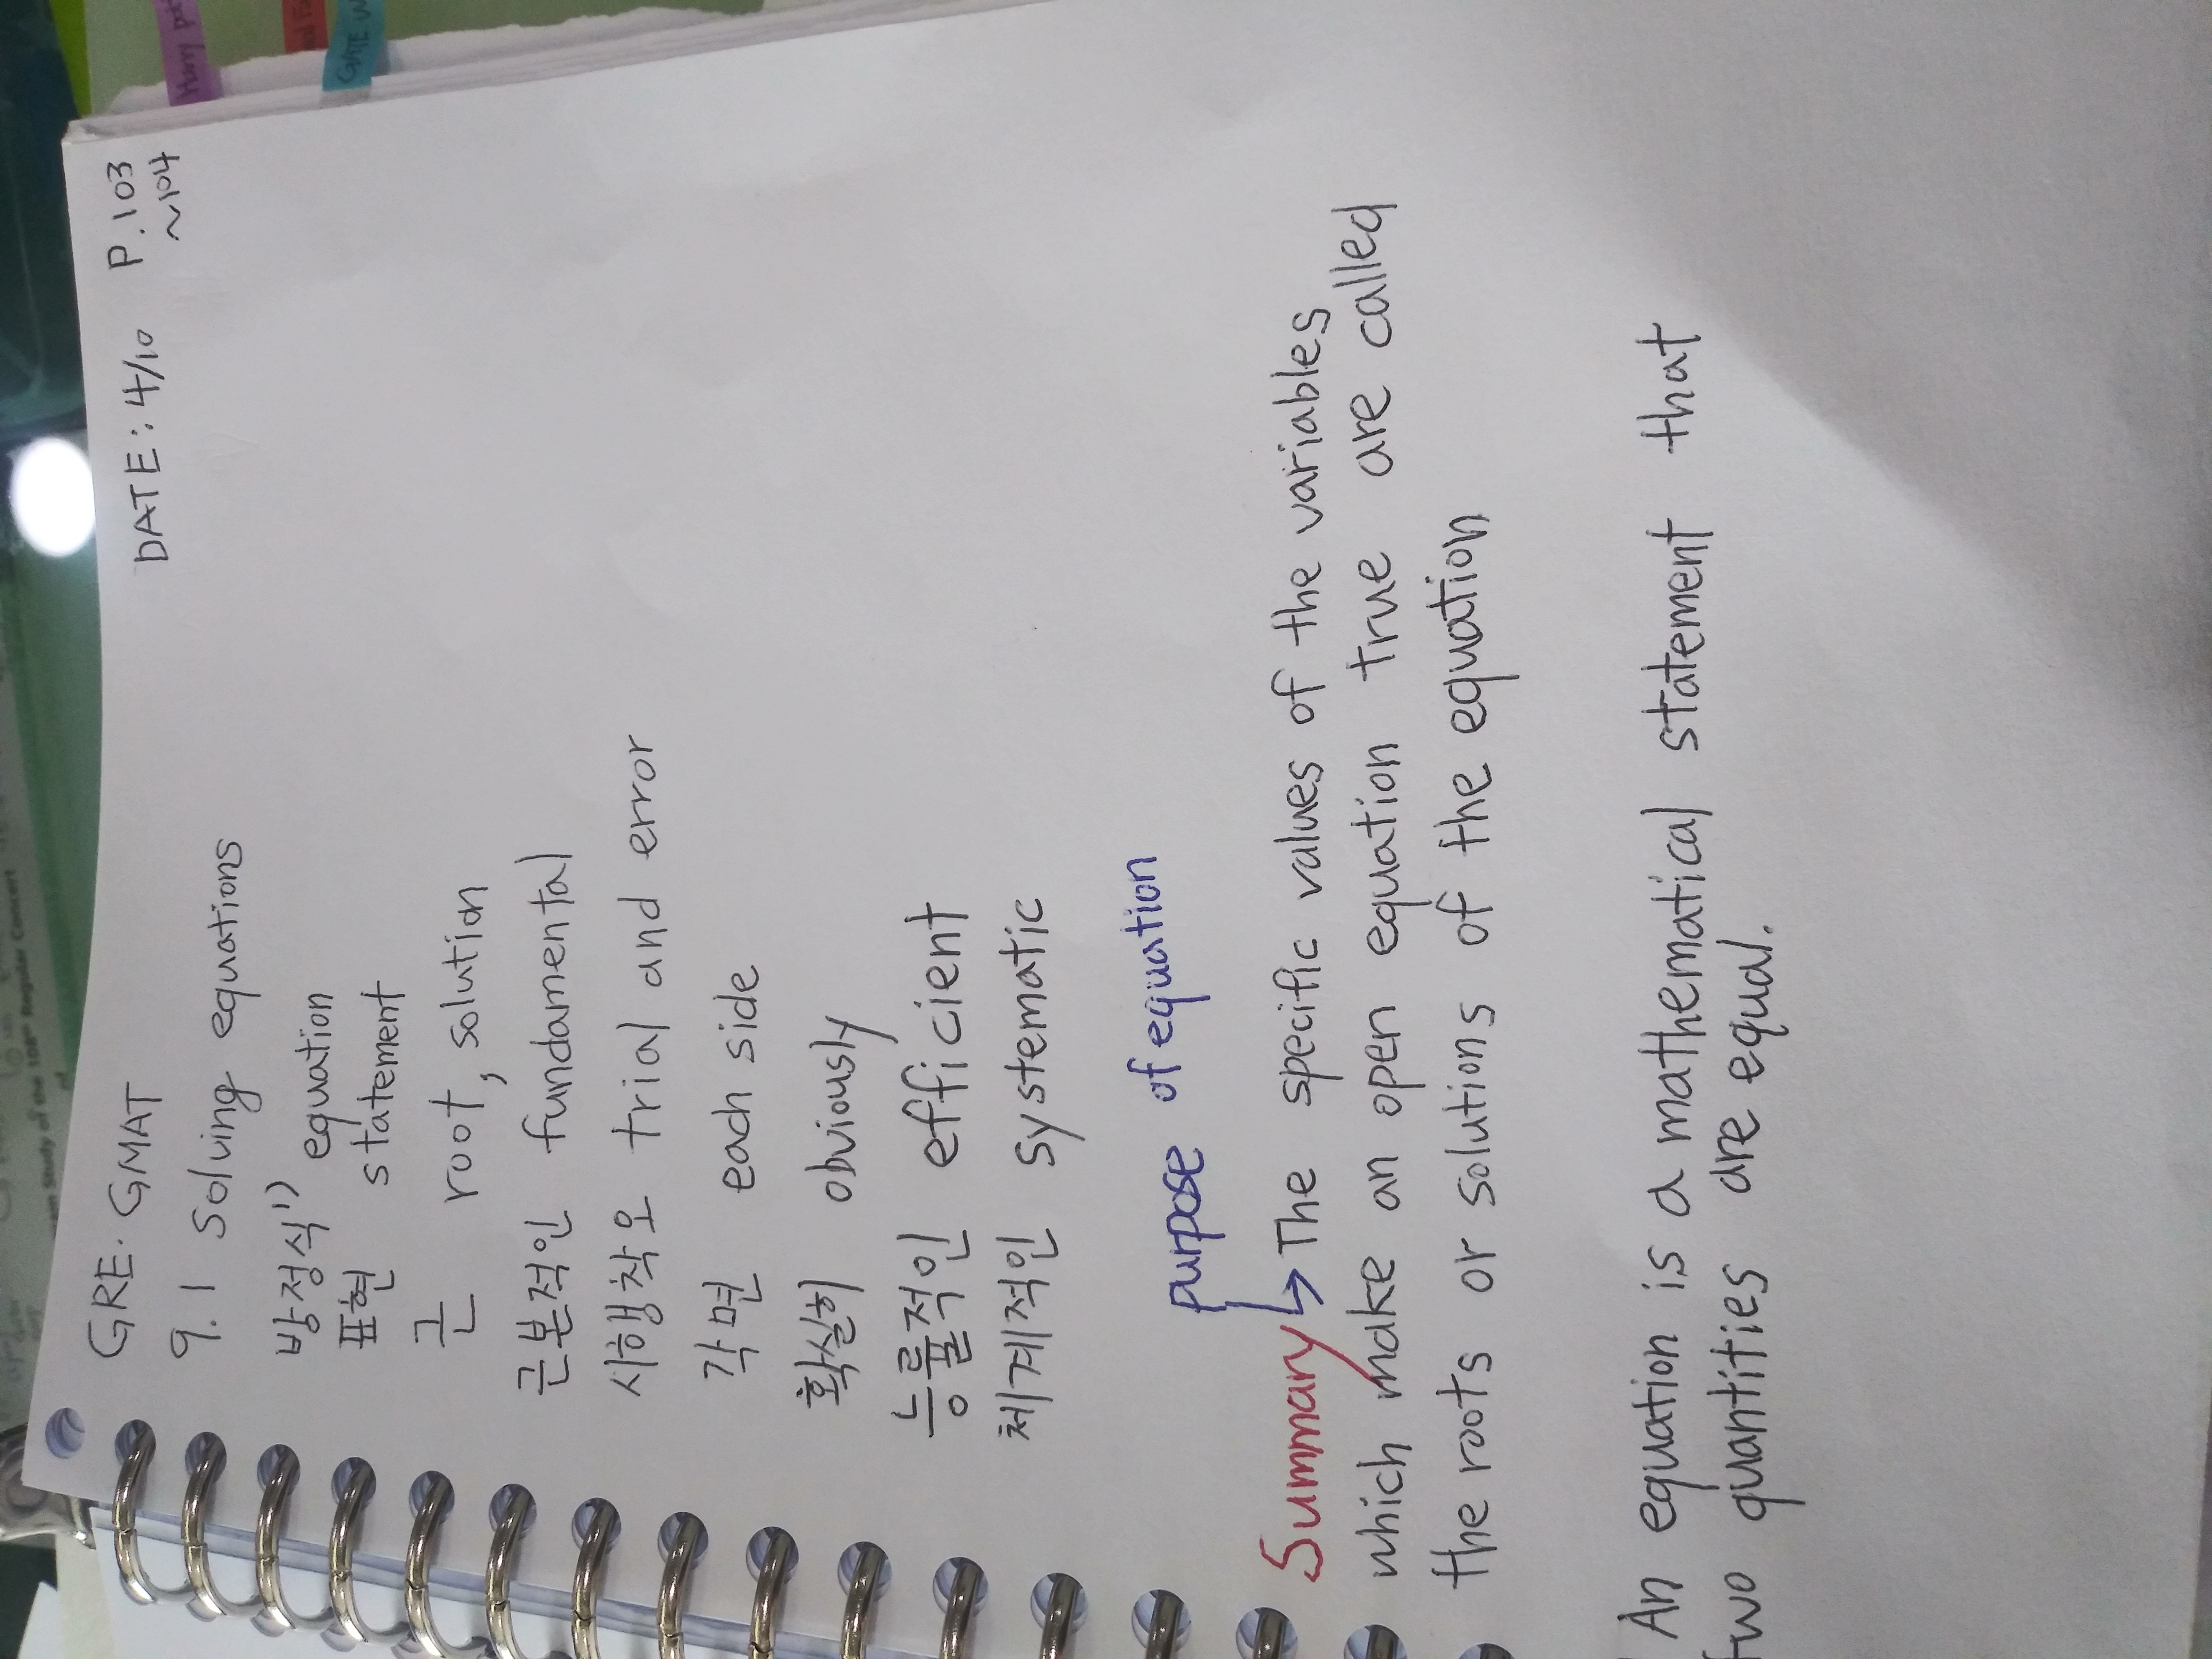 GRE. GMAT
DATE: 4/10 P.103
~104
9.1 Solving equations
방정식¹⁾ equation
표현 statement
근 root, solution
근본적인 fundamental
시행착오 trial and error
각면 each side
확실히 obviously
능률적인 efficient
체계적인 systematic
purpose of equation
Summary → The specific values of the variables
which make an open equation true are called
the roots or solutions of the equation
An equation is a mathematical statement that
two quantities are equal.
Harry
GATE
Study of the 108th Regular Concert